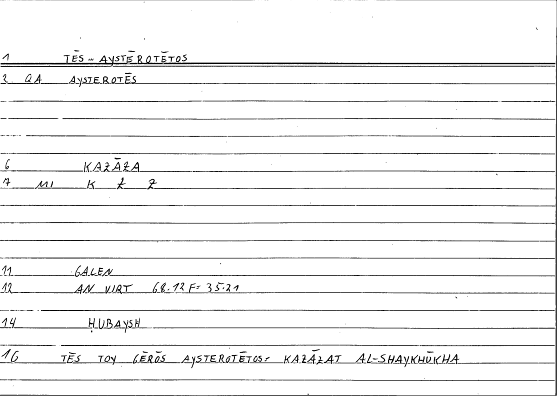 1 TĒS = AYSTĒROTĒTOS
2 QA AYSTEROTĒS
6 KAZĀZA
7 MI K Z Z
11 GALEN
12 AN VIRT 68.12 F= 35.21
14 ḤUBAYSH
16 TĒS TOY GĒRŌS AYSTEROTĒTOS= KAZĀZAT AL-SHAYKHŪKHA